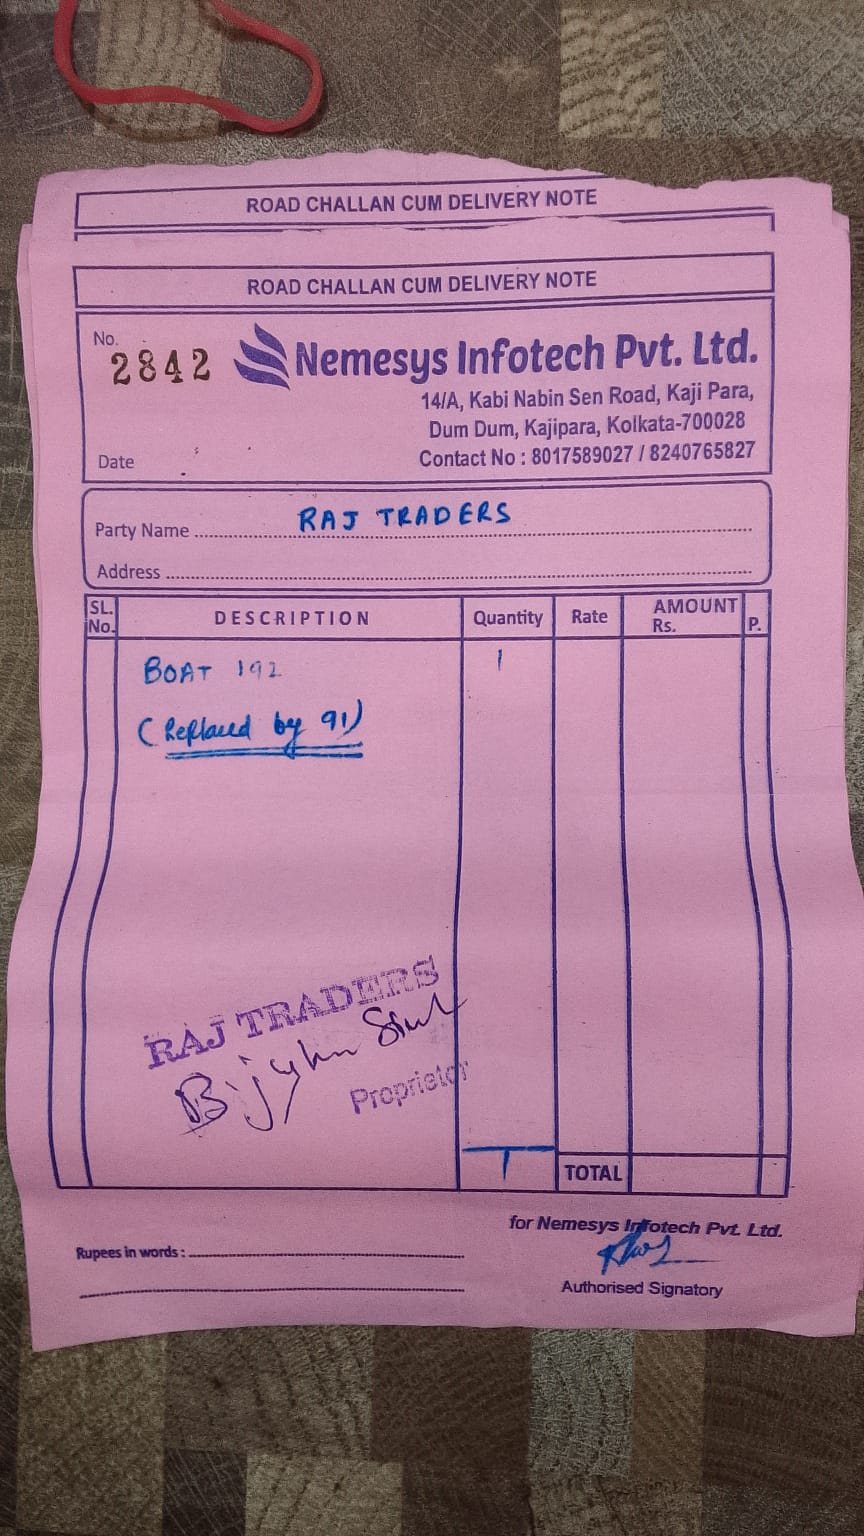 ROAD CHALLAN CUM DELIVERY NOTE
ROAD CHALLAN CUM DELIVERY NOTE
No.
2842
Nemesys Infotech Pvt. Ltd.
14/A, Kabi Nabin Sen Road, Kaji Para,
Dum Dum, Kajipara, Kolkata-700028
Date
Contact No : 8017589027 / 8240765827
Party Name RAJ TRADERS
Address
SL. No. DESCRIPTION Quantity Rate AMOUNT Rs. P.
BOAT 192 1
(Replaced by 91)
RAJ TRADERS
Proprietor
1 TOTAL
for Nemesys Infotech Pvt. Ltd.
Rupees in words :
Authorised Signatory